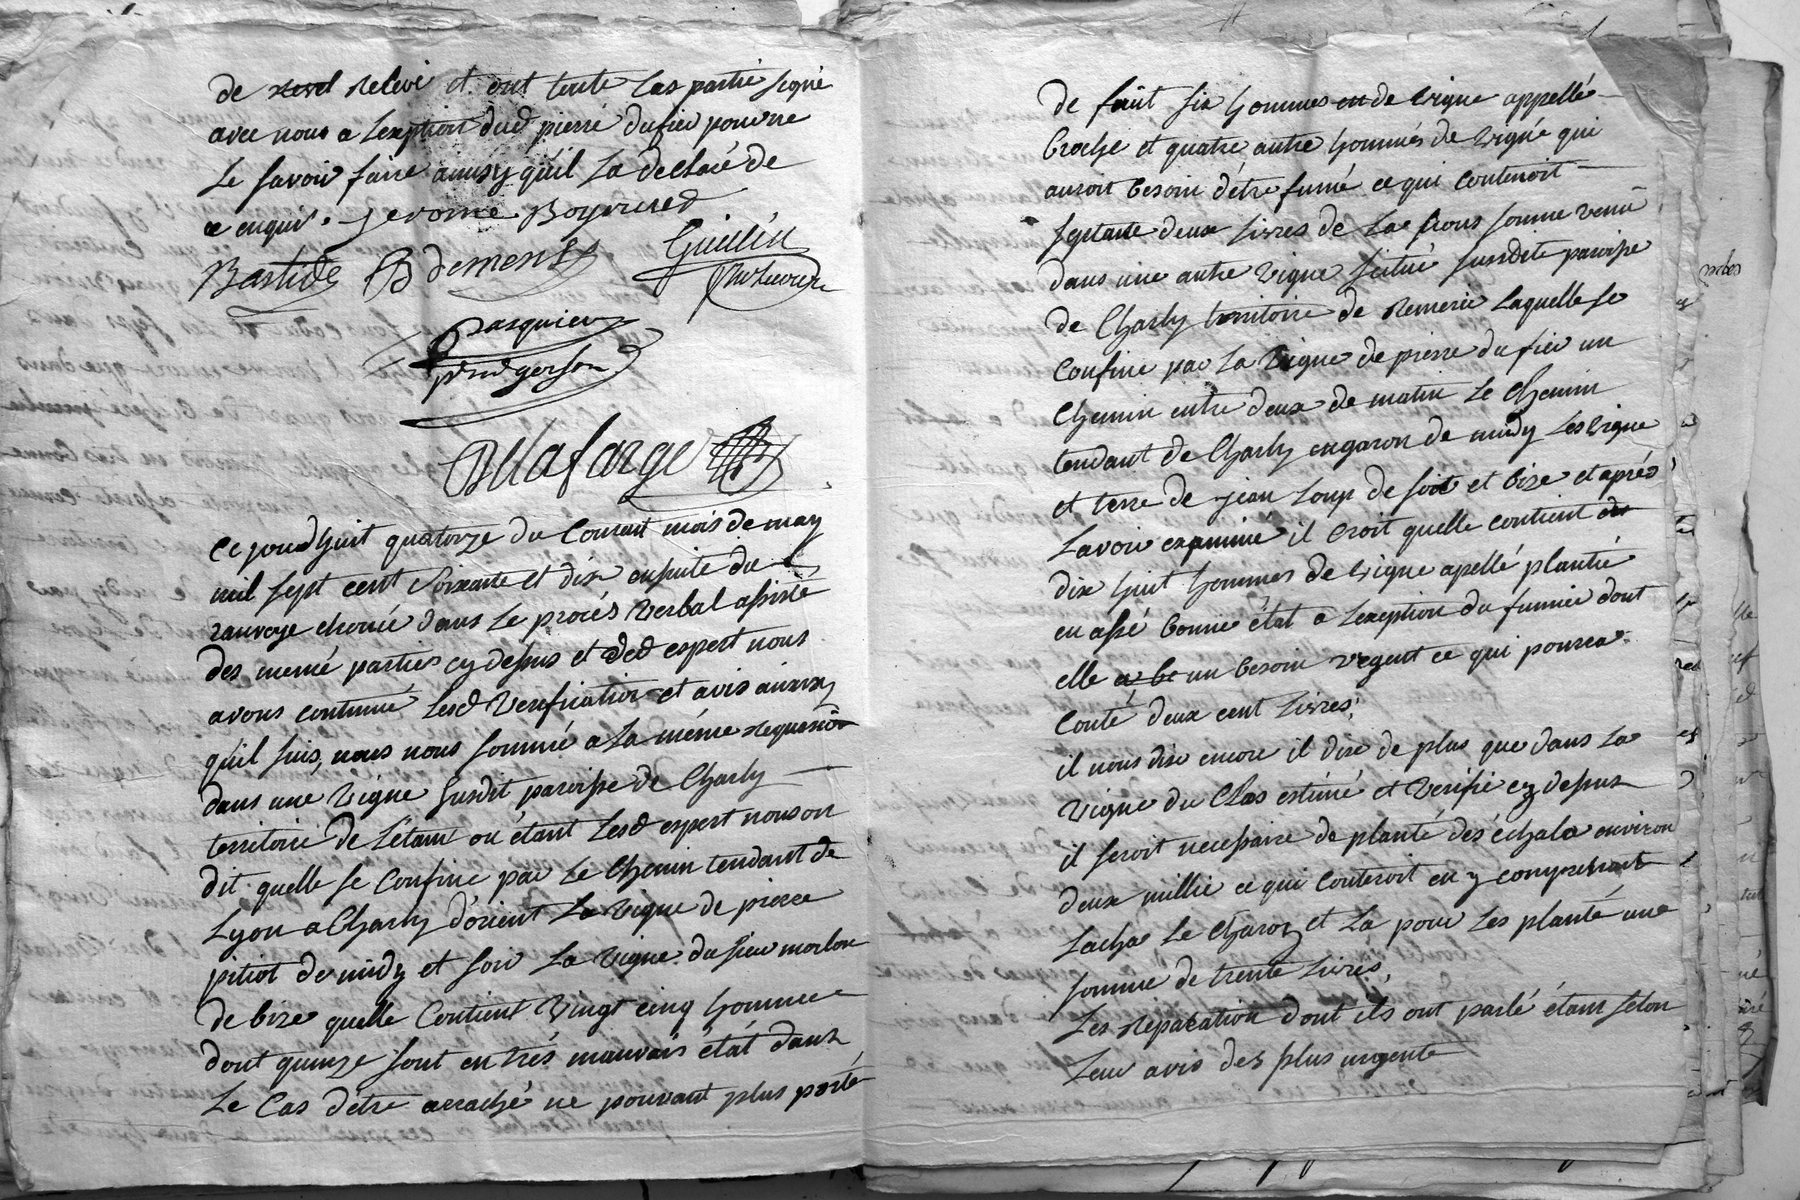 de relevé et ont toute las partié signé
avec nous a lexption dud pierre dufieu pour ne
le savoir faire ainsy qu'il la declaré de
ce enquis. jerome Boyriued
Bastide B dement Guillin
Pasquier
Dllafarge
Ce jourdhuit quatorze du Courant mois de may
mil sept cent soixante et dix ensuite du
ranvoye enoncé dans le procés verbal assisté
des memé parties cy dessus et desd expert nous
avons continué lesd verification et avis ainsy
qu'il suis, nous nous sommé a la même requisition
dans une vigne susdit paroisse de Charly
territoire de Létant ou étant lesd expert nous on
dit quelle se confine par le chemin tendant de
Lyon a Charly d'orient la vigne de pierre
pitiot de midy et soir la vigne du sieur morlon
de bize quelle contient vingt cinq homme
dont quinze sont en trés mauvais état dans
le cas d'etre arraché ne pouvant plus porté
de fruit six hommes de vigne appellé
broche et quatre autre hommes de vigne qui
auroit besoin d'être fumé ce qui couteroit
septante deux livres de la nous somme venu
dans une autre vigne situé susdite paroisse
de Charly territoire de Remerie laquelle se
confine par la vigne de pierre dufieu un
chemin entre deux de matin le chemin
tendant de Charly en garon de midy les vigne
et terre de jean Loup de soir et bize et aprés
lavoir examiné il croit quelle contient
dix huit hommes de vigne apellé plantié
en assé bonne état a lexeption du fumier dont
elle a un besoin urgent ce qui pourra
couté deux cent livres,
il nous dise encore il dise de plus que dans la
vigne du Clos estimé et verifié cy dessus
il seroit necessaire de planté des échala environ
deux millie ce qui couteroit en y comprenant
lachat le charoy et la pour les planté une
somme de trente livres,
Les reparation dont ils ont parlé étant selon
leur avis des plus urgente